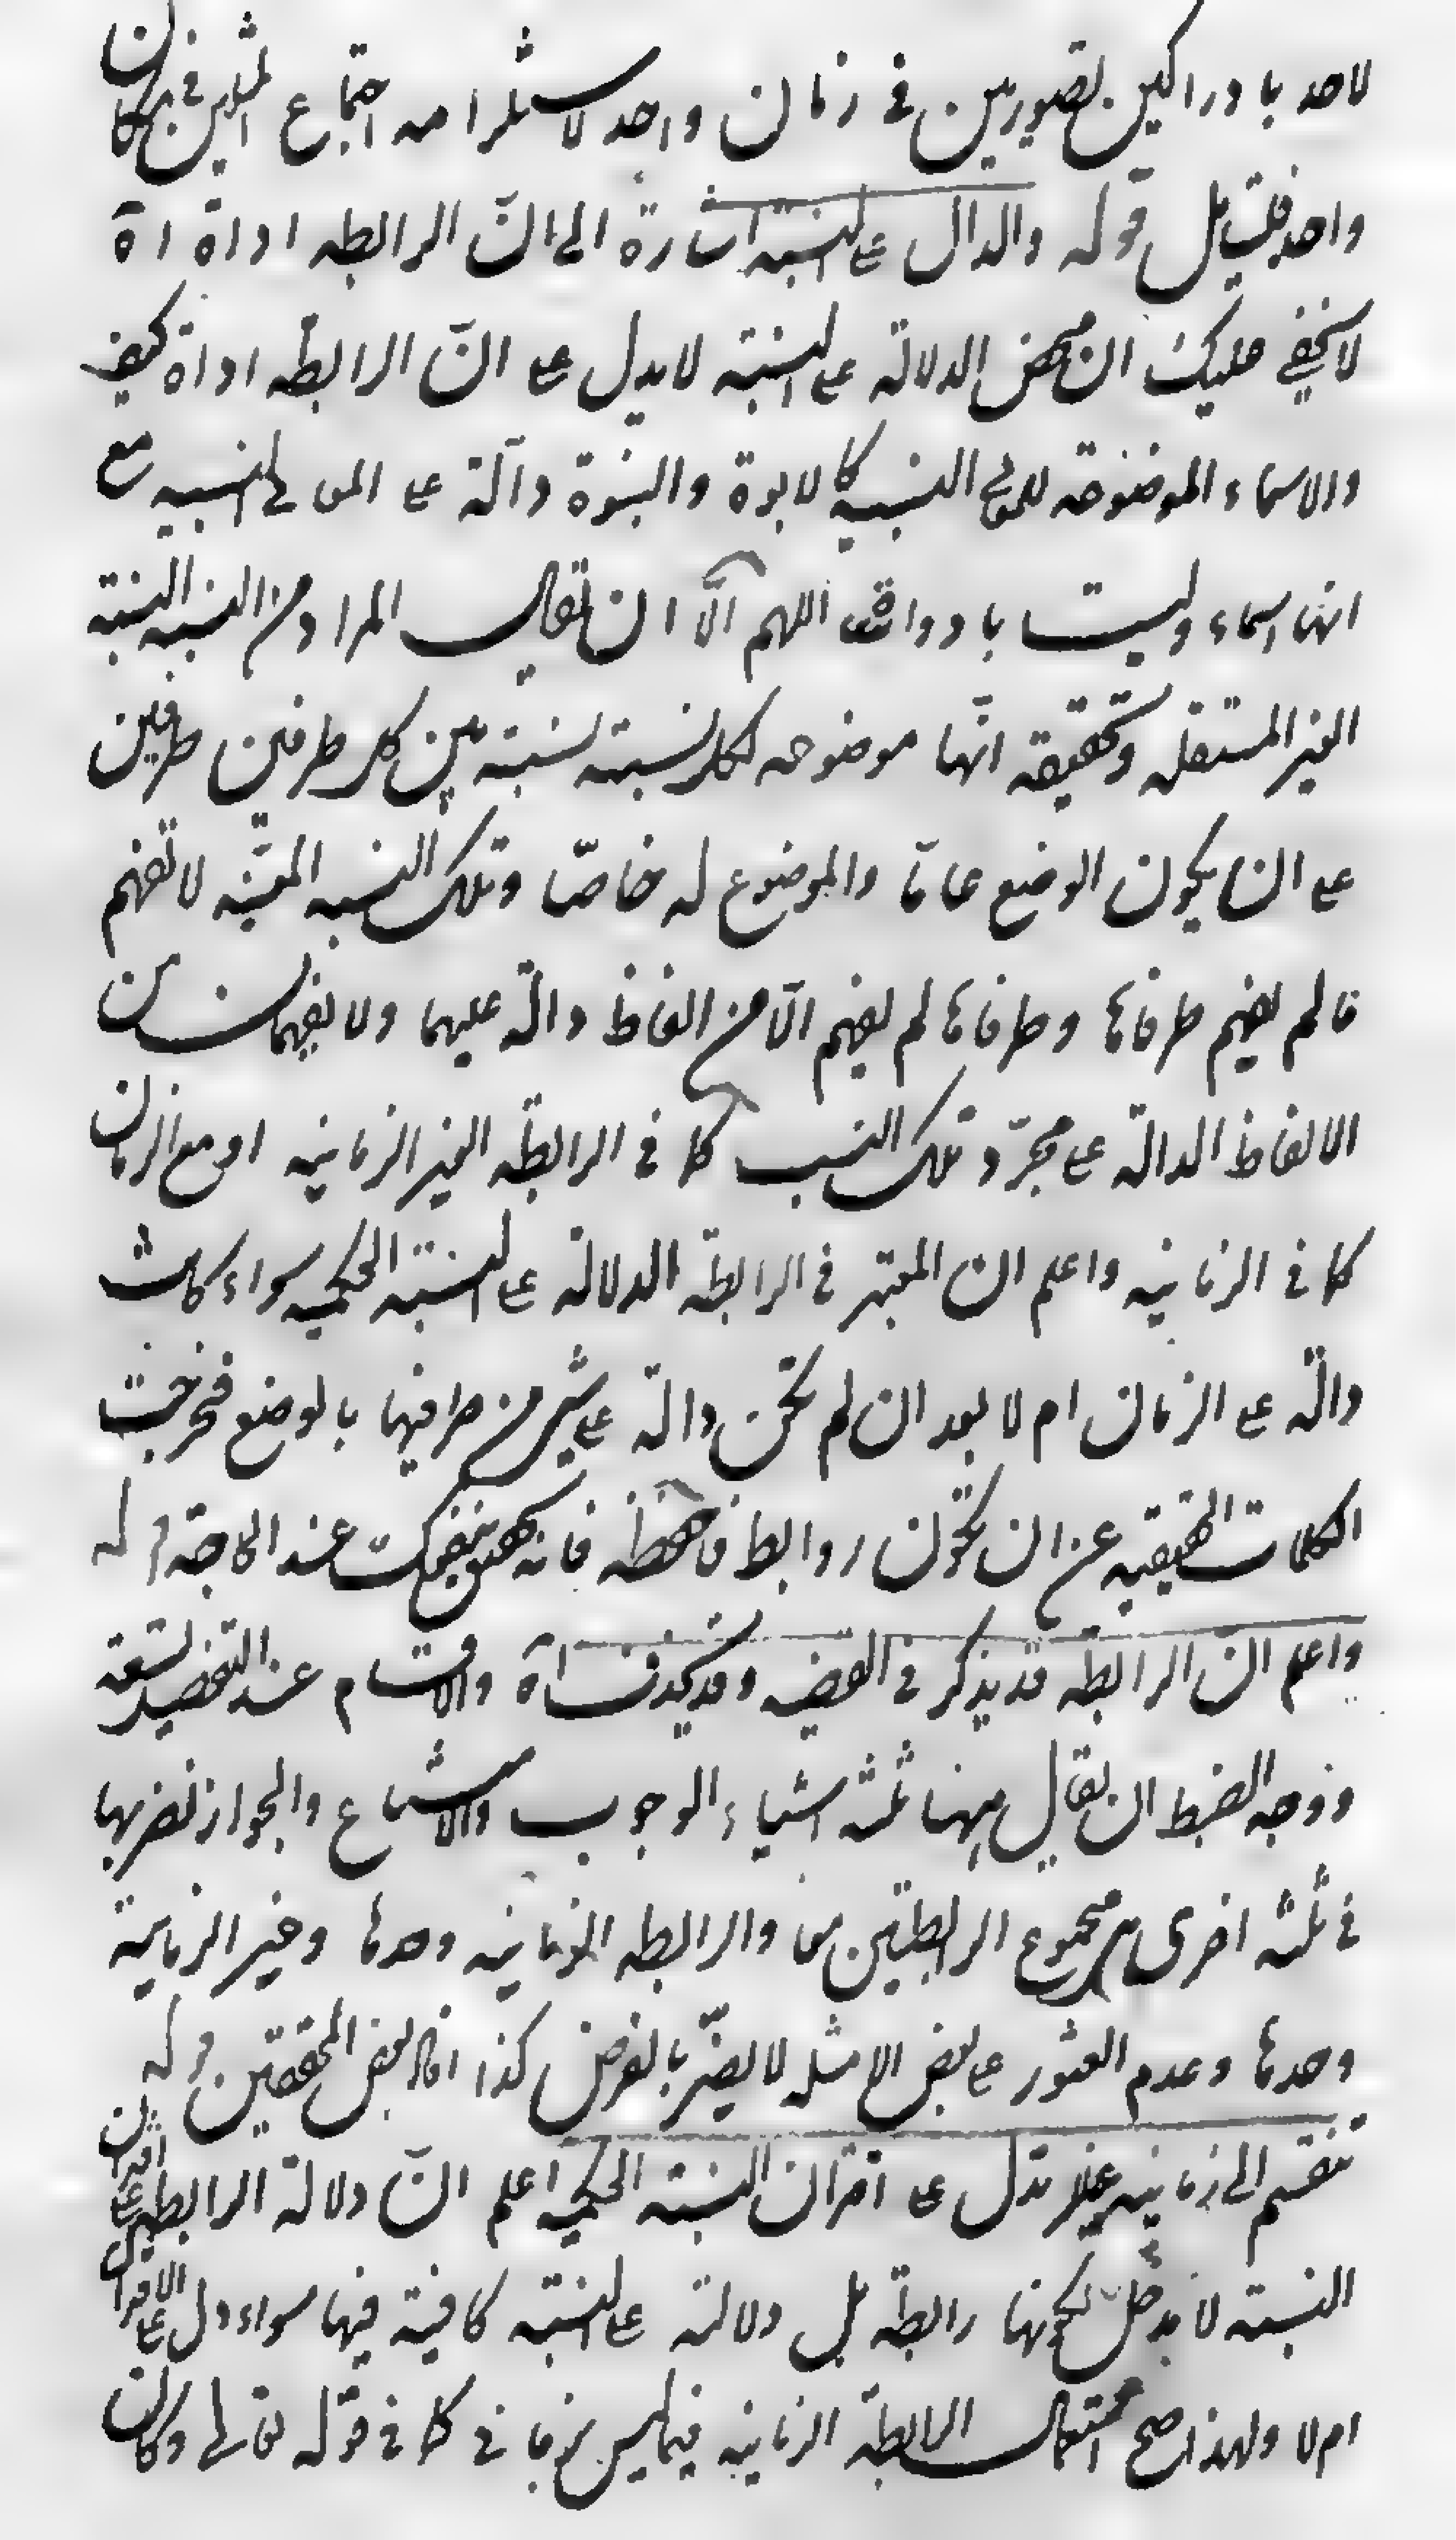 لاحد بادراكين تصوريين في زمان واحد لاستلزامه اجتماع المثلين في مكان
واحد فتأمل قوله والدال على النسبة اشارة الى ان الرابطه اداة اه
لا يخفى عليك ان محض الدلالة على النسبة لا يدل على انّ الرابطه اداة كيف
والاسماء الموضوعه للمعاني النسبيه كالابوة والبنوة دالّة على المعاني النسبيه مع
انها اسماء وليست بادوات اللهم الّا ان يقال المراد من النسبه النسبة
الغير المستقله وتحقيقه انّها موضوعه لكل نسبة نسبة بين كل طرفين طرفين
على ان يكون الوضع عامّا والموضوع له خاصّا وتلك النسبه المعيّنه لا تفهم
ما لم يفهم طرفاها وطرفاها لم يفهم الّا من الفاظ دالّه عليهما ولا يفهمان من
الالفاظ الدالّه على مجرّد تلك النسب كما في الرابطه الغير الزمانيه او مع الزمان
كما في الزمانيه واعلم ان المعتبر في الرابطه الدلالة على النسبة الحكميه سواء كانت
دالّه على الزمان ام لا بعد ان لم تكن دالّه على شيء من طرفيها بالوضع فخرجت
الكلمات الحقيقيه عن ان تكون روابط فاحفظه فانه ينفعك عند الحاجة قوله
واعلم انّ الرابطه قد يذكر في القضيه وقد يحذف اه والاقسام عند التفصيل تسعة
ووجه الضبط ان يقال ههنا ثلثه اشياء الوجوب والامتناع والجواز نضربها
في ثلثه اخرى هي مجموع الرابطتين معا والرابطه الزمانيه وحدها وغير الزمانية
وحدها وعدم العثور على بعض الامثله لا يضرّ بالغرض كذا افاد بعض المحققين قوله
تنقسم الى زمانيه تدل على اقتران النسبة الحكميه اعلم انّ دلالة الرابطه على اقتران
النسبة لا يدخل لكونها رابطة بل دلالته على النسبة كافية فيها سواء دل على الاقتران
ام لا ولهذا صح استعمال الرابطه الزمانيه فيما ليس بزماني كما في قوله تعالى وكان